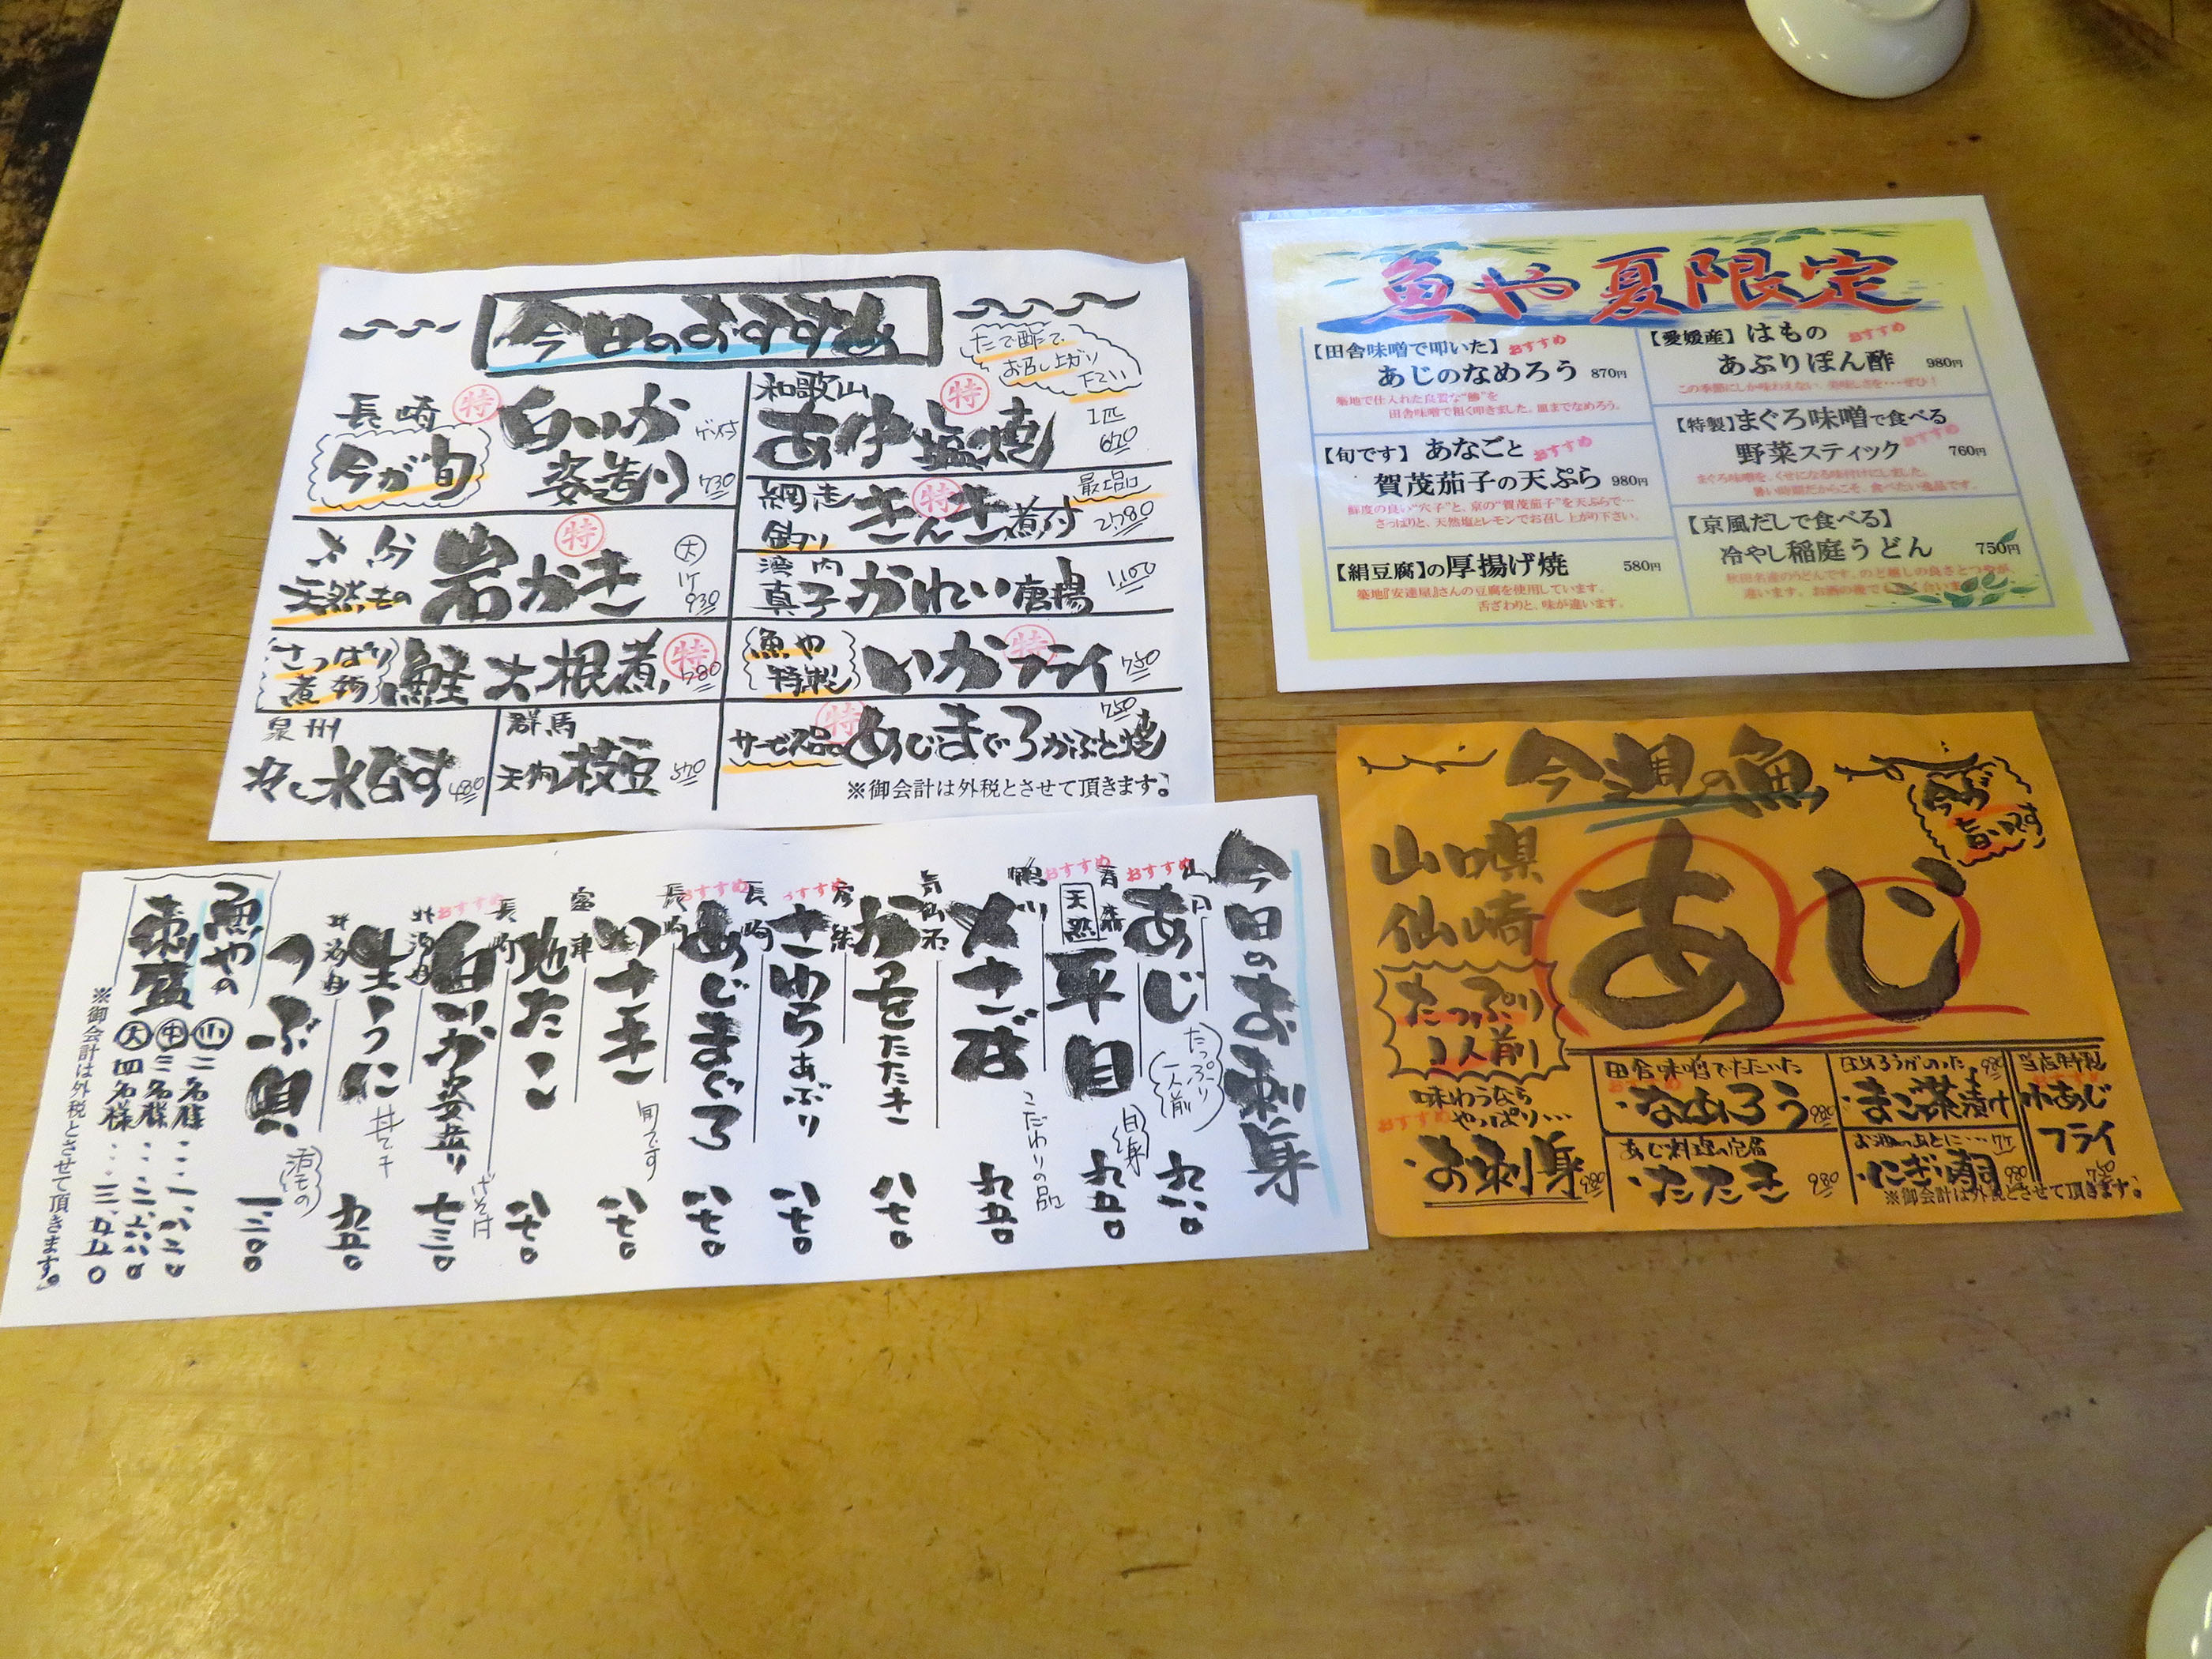 今日のおすすめ
たで酢で
お召し上がり
下さい
長崎
特
今が旬
白いか
姿造り
ゲソ付
730
大分
天然もの
特
岩かき
大
1ケ
930
さっぱり
煮物
鮭大根煮
特
780
泉州
冷し水なす
480
群馬
天狗枝豆
520
和歌山
特
あゆ塩焼
1匹
620
網走
釣り
特
きんき煮付
最上品
2,780
湾内
真子かれい唐揚
1,100
魚や
特製
特
いかフライ
750
サービス品
特
あじまぐろかぶと焼
750
※御会計は外税とさせて頂きます。
魚や夏限定
【田舎味噌で叩いた】おすすめ
あじのなめろう 870円
築地で仕入れた良質な“鯵”を
田舎味噌で粗く叩きました。皿までなめろう。
【旬です】あなごと おすすめ
賀茂茄子の天ぷら 980円
鮮度の良い“穴子”と、京の“賀茂茄子”を天ぷらで…
さっぱりと、天然塩とレモンでお召し上がり下さい。
【絹豆腐】の厚揚げ焼 580円
築地『安達屋』さんの豆腐を使用しています。
舌ざわりと、味が違います。
【愛媛産】はもの おすすめ
あぶりぽん酢 980円
この季節にしか味わえない、美味しさを・・・ぜひ！
【特製】まぐろ味噌で食べる
野菜スティック おすすめ 760円
まぐろ味噌を、くせになる味付けにしました。
暑い時期だからこそ、食べたい逸品です。
【京風だしで食べる】
冷やし稲庭うどん 750円
秋田名産のうどんです。のど越しの良さとつやが、
違います。お酒の後でも
今日のお刺身
おすすめ
あじ
たっぷり
一人前
九八〇
おすすめ
青森
天然
平目
白身
九五〇
鴨川
〆さば
こだわりの品
九五〇
気仙沼
かつをたたき
八七〇
おすすめ
さわらあぶり
八七〇
おすすめ
長崎
あじまぐろ
八七〇
長崎
いさき
旬です
八七〇
富津
地たこ
八七〇
おすすめ
長崎
白いか姿造り
げそ付
七三〇
北海道
生うに
九五〇
北海道
つぶ貝
活もの
一二〇〇
魚やの
刺盛
小 二名様・・・一、八二〇
中 三名様・・・二、六八〇
大 四名様・・・三、五五〇
※御会計は外税とさせて頂きます。
今週の魚
今が
旨いです
山口県
仙崎
あじ
たっぷり
1人前
味わうなら
やっぱり…
おすすめ
・お刺身 980
田舎味噌でたたいた
おすすめ
・なめろう 980
あじ料理の定番
・たたき 980
なめろうがのった 980
・まご茶漬け
お酒のあとに… 7ケ
・にぎり寿司 980
当店特製
おすすめ
小あじ
フライ
750
※御会計は外税とさせて頂きます。